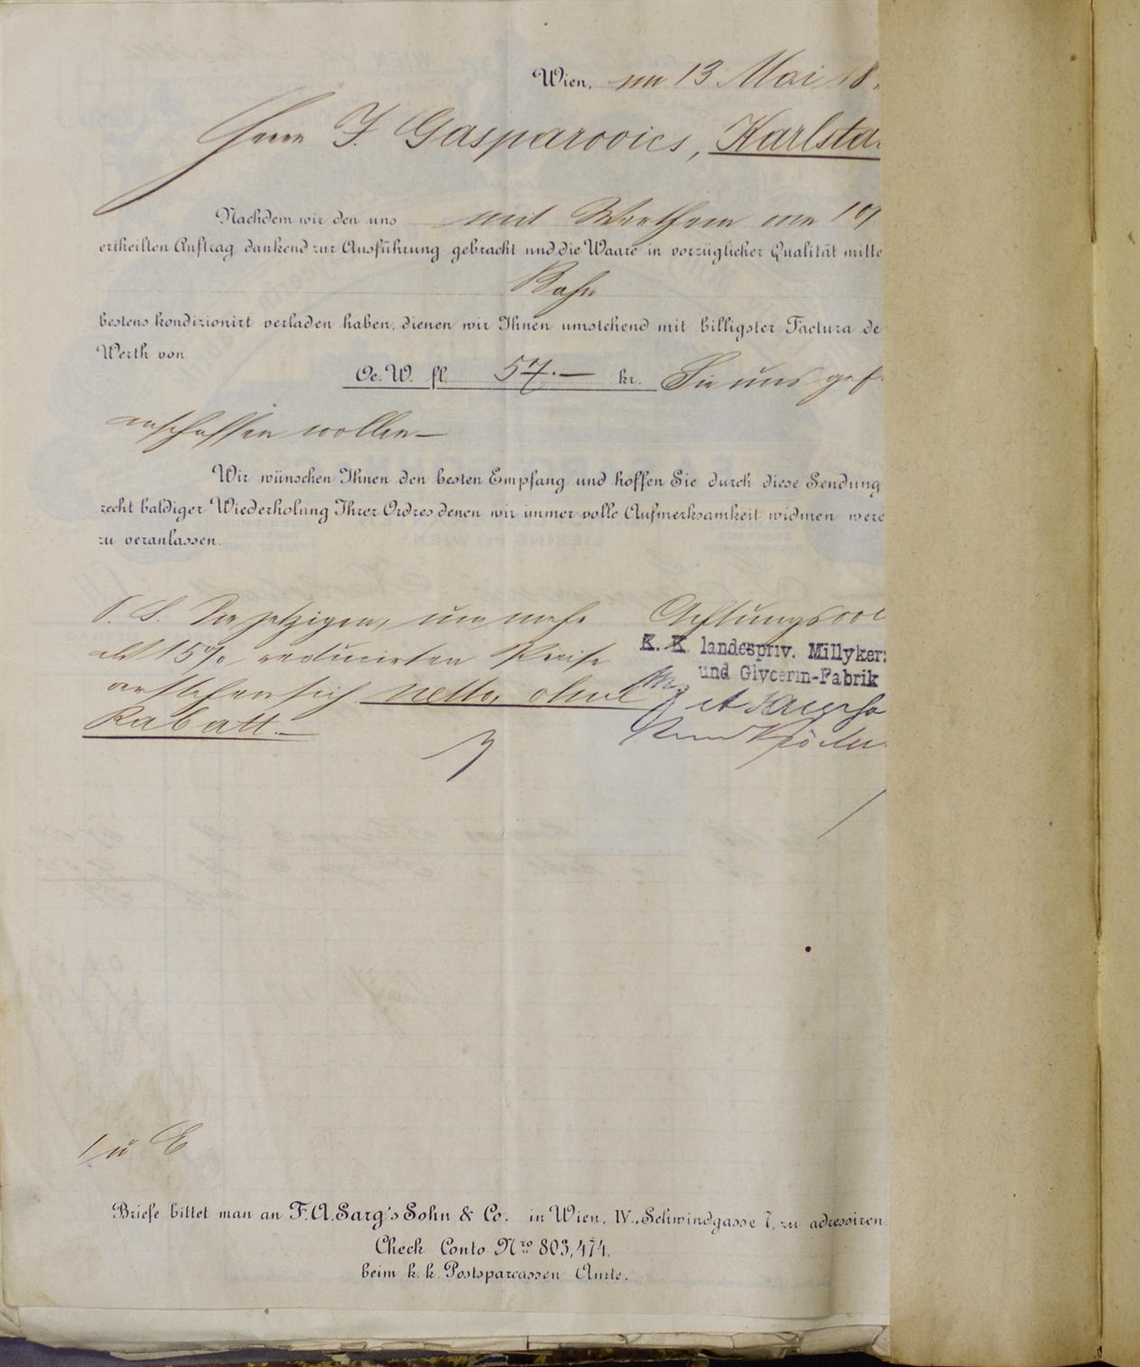 Wien, am 13 Mai 18
Herrn F. Gasparovics, Karlsta
Nachdem wir den uns mit Werthem vom 10
ertheilten Auftrag dankend zur Ausführung gebracht und die Waare in vorzüglicher Qualität mitte
Bahn
bestens kondizionirt verladen haben, dienen wir Ihnen umstehend mit billigster Factura de
Werth von
Oe. W. fl. 57.— kr. Sie uns gef
anschaffen wollen—
Wir wünschen Ihnen den besten Empfang und hoffen Sie durch diese Sendung
recht baldiger Wiederholung Ihrer Ordres denen wir immer volle Aufmerksamkeit widmen werd
zu veranlassen.
P. S. Die jetzigen, um mehr Achtungsvol
als 15% reducirten Preise
K. K. landespriv. Millykerz
und Glycerin-Fabrik
verstehen sich netto, ohne
Rabatt.—
Briefe bittet man an F. A. Sarg's Sohn & Co. in Wien, IV., Schwindgasse 7, zu adressiren
Check Conto Nro 803,474.
beim k. k. Postsparcassen Amte.